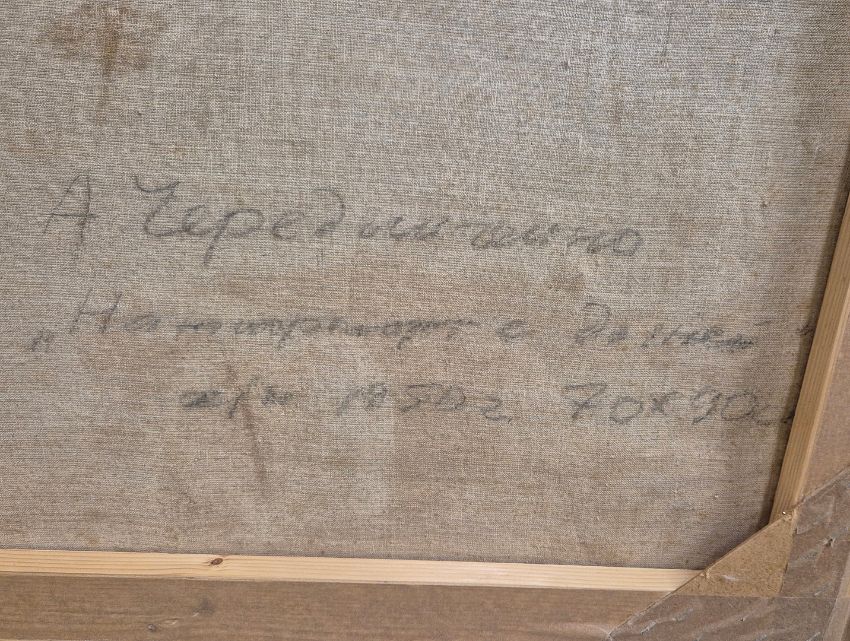 А Чередниченко
„Натюрморт с дыней"
х/м 1950г. 70х90с